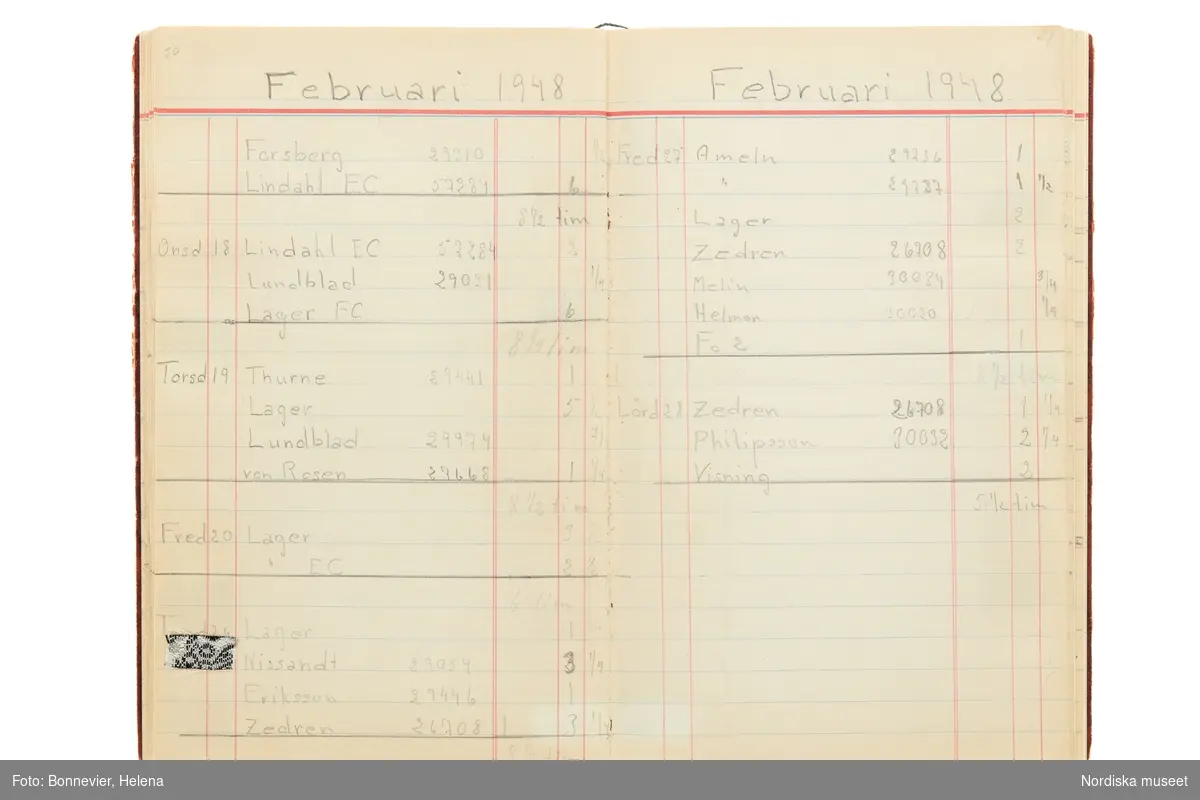 30
Februari 1948
Forsberg 29210
Lindahl EC 57284 6
8 1/2 tim
Onsd 18 Lindahl EC 57284 2
Lundblad 29031 1/4
Lager EC 6
8 1/4 tim
Torsd 19 Thurne 29441 1
Lager 5
Lundblad 29974
von Rosen 29668 1 1/4
8 1/2 tim
Fred 20 Lager 3
" EC 2
tim
Lager 1
Nissandt 29054 3 1/4
Eriksson 29446 1
Zedren 26708 3 1/4
31
Februari 1948
Fred 27 Ameln 29236 1
" 29787 1 1/2
Lager 2
Zedren 26708 2
Melin 30034 3/4
Helman 30020 1/4
Fo 2 1
8 1/2 tim
Lörd 28 Zedren 26708 1 1/4
Philipsson 30032 2 1/4
Visning 2
5 1/2 tim
Foto: Bonnevier, Helena
Nordiska museet